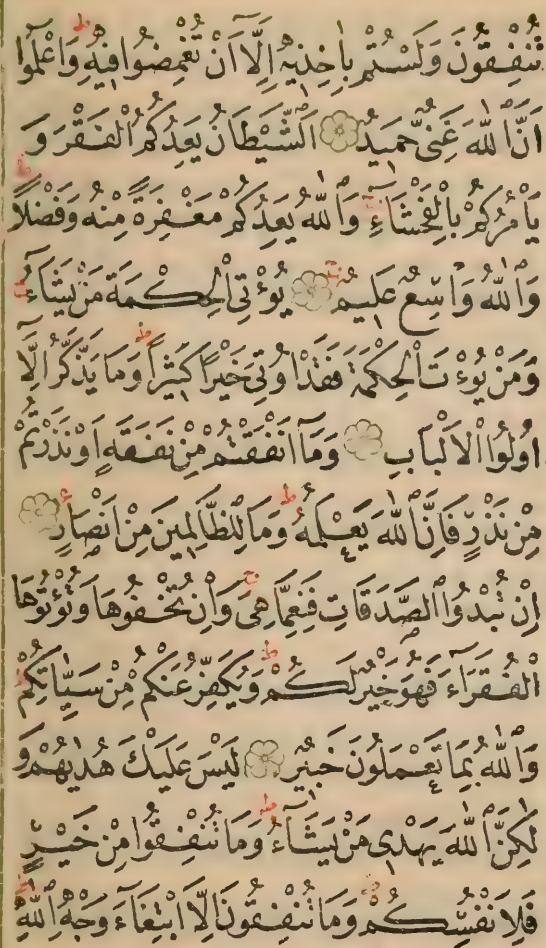 تُنْفِقُونَ وَلَسْتُمْ بِاٰخِذِيهِ اِلَّا اَنْ تُغْمِضُوا فِيهِ ط وَاعْلَمُوا
اَنَّ اللّٰهَ غَنِىٌّ حَمِيدٌ اَلشَّيْطَانُ يَعِدُكُمُ الْفَقْرَ وَ
يَاْمُرُكُمْ بِالْفَحْشَاءِ ج وَاللّٰهُ يَعِدُكُمْ مَغْفِرَةً مِنْهُ وَفَضْلًا ط
وَاللّٰهُ وَاسِعٌ عَلِيمٌ يُؤْتِى الْحِكْمَةَ مَنْ يَشَاءُ ج
وَمَنْ يُؤْتَ الْحِكْمَةَ فَقَدْ اُوتِىَ خَيْرًا كَثِيرًا ط وَمَا يَذَّكَّرُ اِلَّا
اُولُوا الْاَلْبَابِ وَمَا اَنْفَقْتُمْ مِنْ نَفَقَةٍ اَوْ نَذَرْتُمْ
مِنْ نَذْرٍ فَاِنَّ اللّٰهَ يَعْلَمُهُ ط وَمَا لِلظَّالِمِينَ مِنْ اَنْصَارٍ
اِنْ تُبْدُوا الصَّدَقَاتِ فَنِعِمَّا هِىَ ج وَاِنْ تُخْفُوهَا وَتُؤْتُوهَا
الْفُقَرَاءَ فَهُوَ خَيْرٌ لَكُمْ ط وَيُكَفِّرُ عَنْكُمْ مِنْ سَيِّاٰتِكُمْ ط
وَاللّٰهُ بِمَا تَعْمَلُونَ خَبِيرٌ لَيْسَ عَلَيْكَ هُدٰيهُمْ وَ
لٰكِنَّ اللّٰهَ يَهْدِى مَنْ يَشَاءُ ط وَمَا تُنْفِقُوا مِنْ خَيْرٍ
فَلِاَنْفُسِكُمْ ط وَمَا تُنْفِقُونَ اِلَّا ابْتِغَاءَ وَجْهِ اللّٰهِ ط